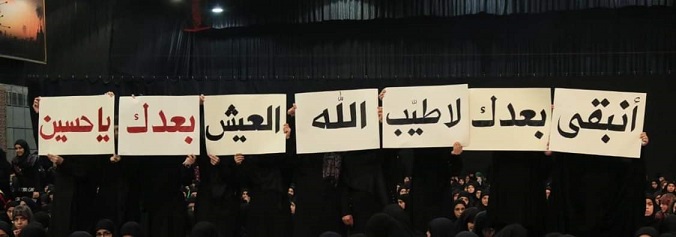 أنبقى بعدك لا طيّب الله العيش بعدك يا حسين